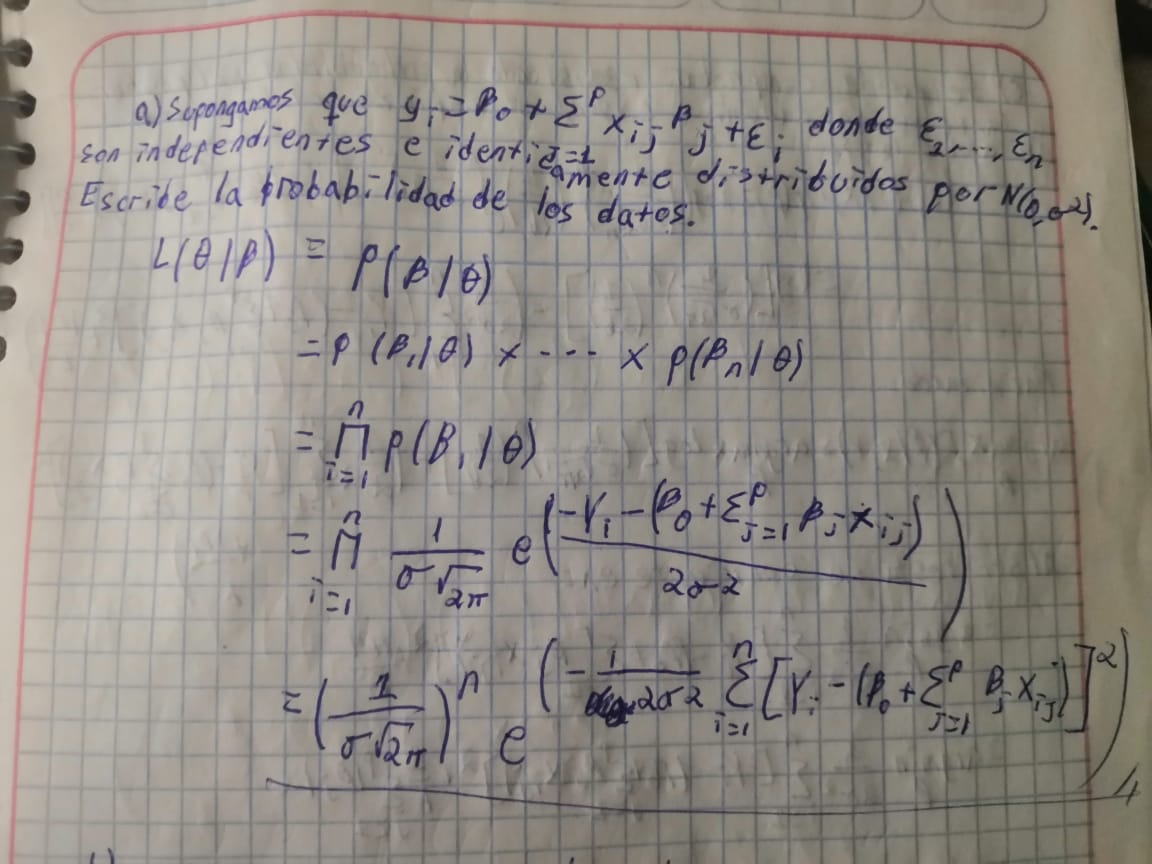 a) Supongamos que y_i = β_0 + Σ^p_{j=1} x_{ij} β_j + ε_i donde ε_1, ..., ε_n
son independientes e identicamente distribuidos por N(0, σ2).
Escribe la probabilidad de los datos.
L(θ|β) = P(β|θ)
= P(β_1|θ) × --- × p(β_n|θ)
= ∏^n_{i=1} p(β_i|θ)
= ∏^n_{i=1} 1/(σ√2π) e^((-Y_i - (β_0 + Σ^p_{j=1} β_j x_{ij}))/(2σ2))
= (1/(σ√2π))^n e^(-1/(2σ2) Σ^n_{i=1} [Y_i - (β_0 + Σ^p_{j=1} β_j x_{ij})]^2)